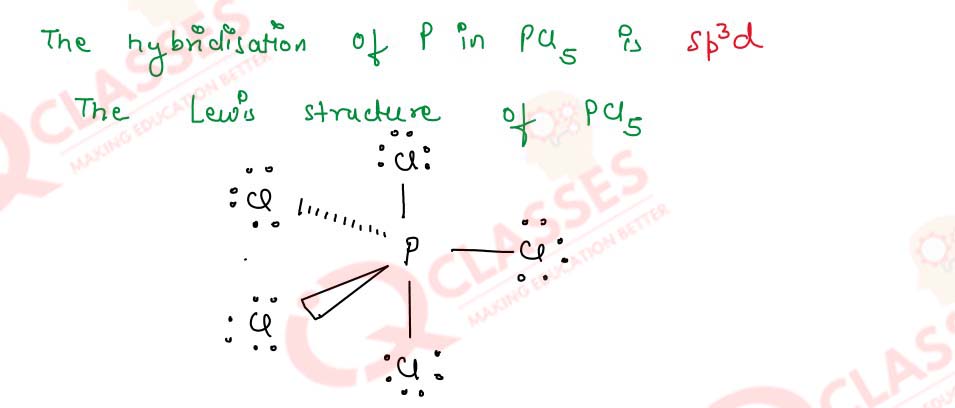 The hybridisation of P in PCl5 is sp³d
The Lewis structure of PCl5
Cl
Cl
P Cl
Cl
Cl
CLASSES
MAKING EDUCATION BETTER
CLASSES
MAKING EDUCATION BETTER
CLASSES